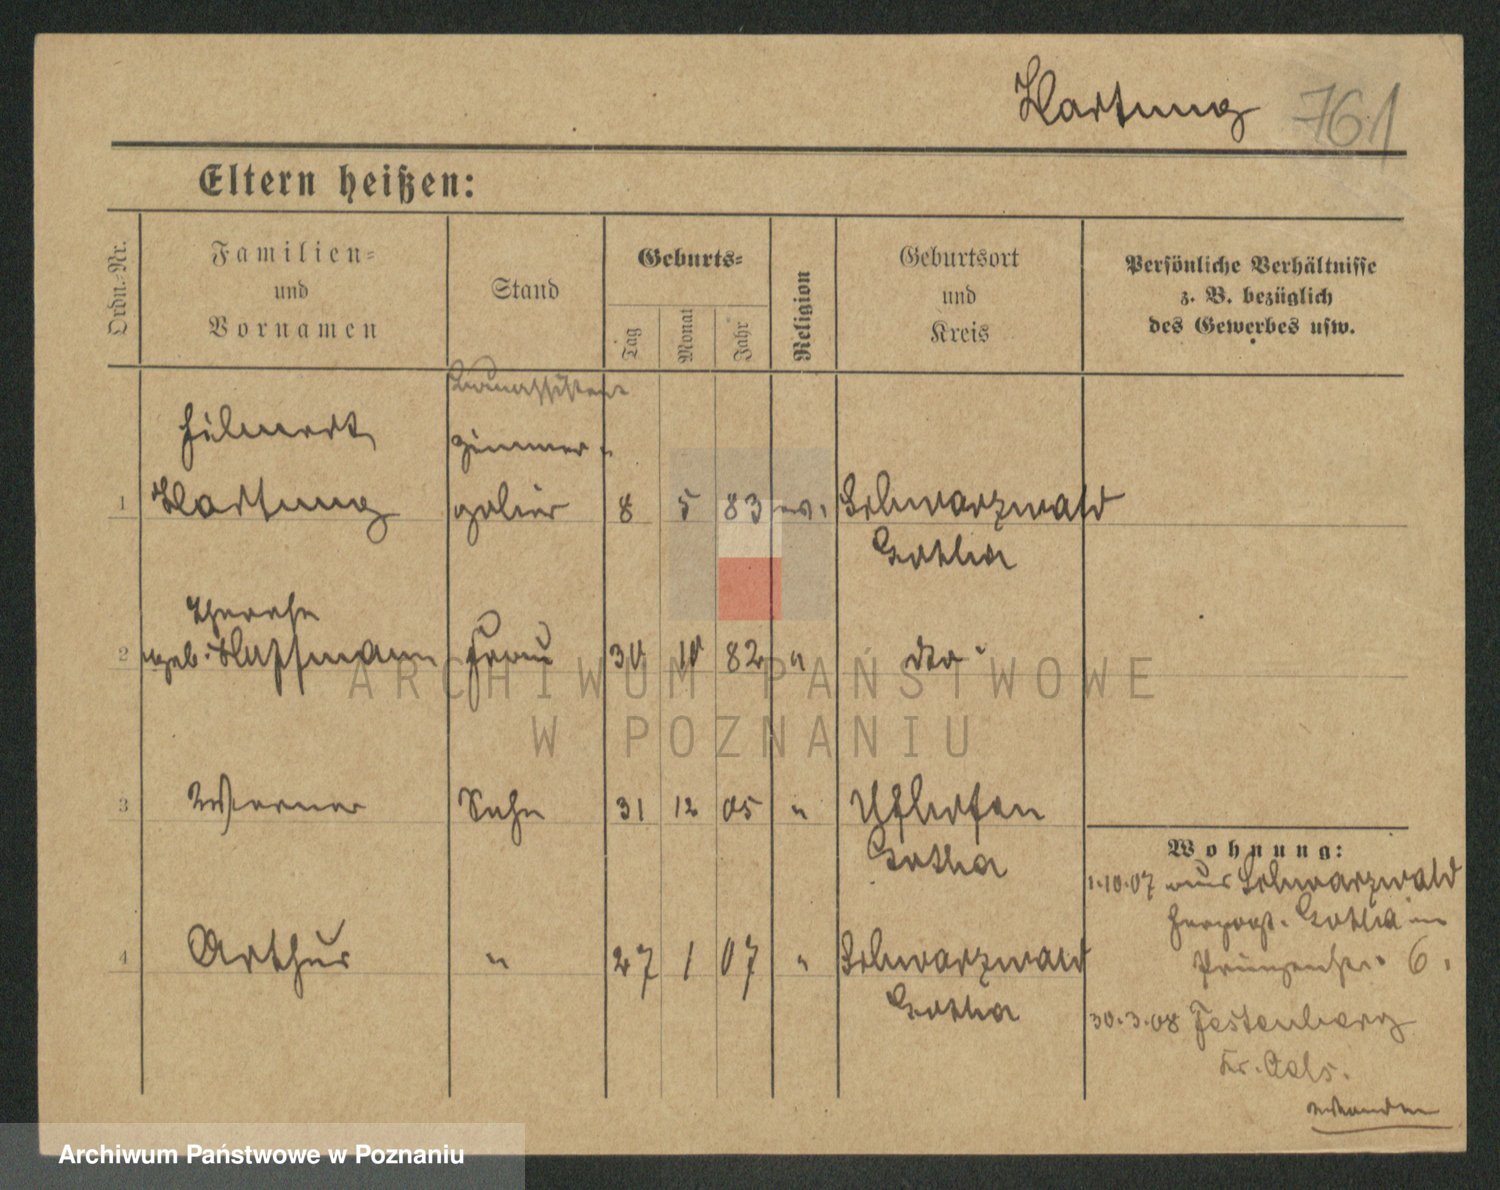 Hartung 761
Eltern heißen:
Ordn.-Nr.
Familien-
und
Vornamen
Stand
Geburts-
Tag
Monat
Jahr
Religion
Geburtsort
und
Kreis
Persönliche Verhältnisse
z. B. bezüglich
des Gewerbes usw.
Bauassistent
Hilmert
Zimmer-
1 Hartung polier 8 5 83 ev. Schwarzwald
Gotha
Therese
2 geb. Frau 30 10 82 " dto
3 Werner Sohn 31 12 05 " Gotha
4 Arthur " 27 1 07 " Schwarzwald
Gotha
Wohnung:
1.10.07 aus Schwarzwald
Herzogt. Gotha in
6.
30.3.08 Festenberg
Kr. Oels.
ARCHIWUM PAŃSTWOWE
W POZNANIU
Archiwum Państwowe w Poznaniu